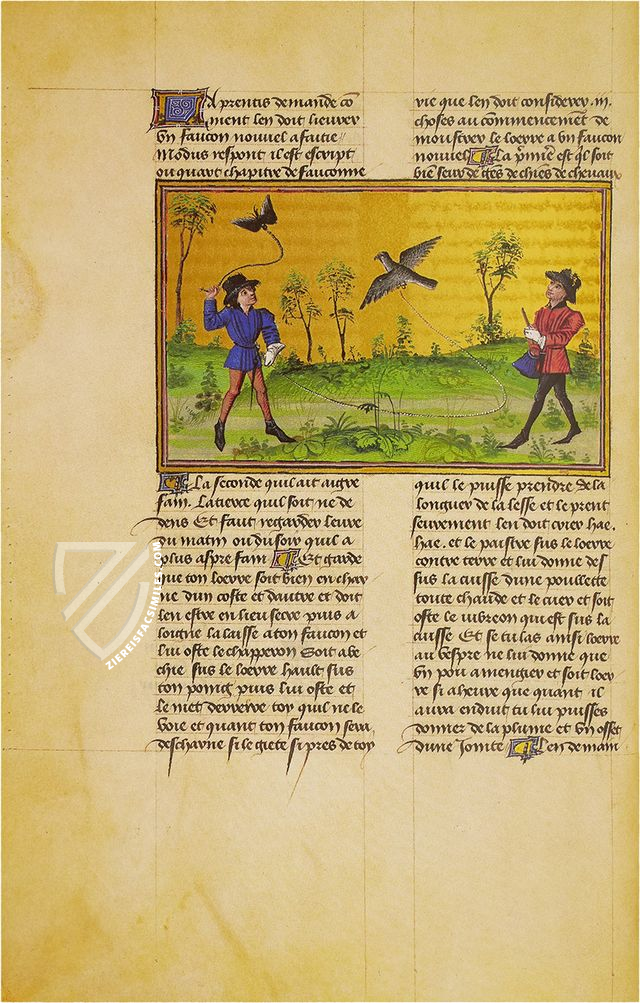 Aprentis demande co
ment len doit lieurer
vn faucon nouuel a faitie
Modus respont il est escript
ou quart chapitre de fauconne
rie que len doit considerer .iii.
choses au commencement de
moustrer le loerre a vn faucon
nouuel La p̃miere est q̃l soit
bien seur de gẽs de chiẽs de cheuaux
La seconde quil ait aigre
fain. La tierce quil soit ne de
dens Et faut regarder leure
du matin ou du soir quil a
plus aspre fain Et garde
que ton loerre soit bien en char
ne dun coste et dautre et doit
len estre en lieu secre puis a
loigne la laisse a ton faucon et
lui oste le chapperon Soit abe
chie sus le loerre hault sus
ton poing puis lui oste et
le met derriere toy quil ne le
voie et quant ton faucon sera
descharne si le giete si pres de toy
quil le puisse prendre de la
longuer de la lesse et le prent
seurement len doit crier hae.
hae. et le paistre sus le loerre
contre terre et lui donne des
sus la cuisse dune poullette
toute chaude et le cuer et soit
oste le iubreon qui est sus la
cuisse Et se tu las ainsi loerre
au vespre ne lui donne que
vn pou a mengier et soit loer
re si a heure que quant il
aura enduit tu lui puisses
donner de la plume et vn osset
dune iointe Len demain
ZIEREISFACSIMILES.COM